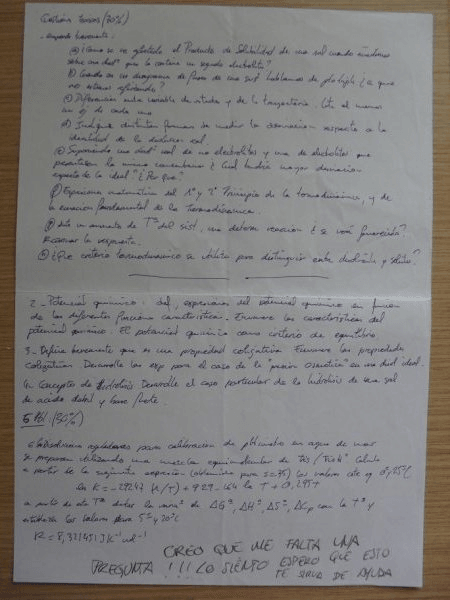 Cuestiones Teoricas (70%)
- Responde brevemente.
a) ¿Como se ve afectado el Producto de Solubilidad de una sal cuando añadimos
sobre una disol que la contiene un segundo electrolito?
b) Cuando en un diagrama de fases de una sust hablamos de pto triple ¿a que
nos estamos refiriendo?
c) Diferencias entre variable de estado y de la trayectoria. Cite al menos
un ej de cada una
d) Indique distintas formas de medir la desviacion respecto a la
idealidad de la disolucion real.
e) Suponiendo una disol real de no electrolitos y una de electrolitos que
presentasen la misma concentracion ¿Cual tendria mayor desviacion
respecto de la ideal? ¿Por que?
f) Expresion matematica del 1º y 2º Principio de la termodinamica, y de
la ecuacion fundamental de la Termodinamica.
g) Ante un aumento de Tª del sist, una determ reacción ¿se verá favorecida?
Razonar la respuesta.
h) ¿Que criterio termodinamico se utiliza para distinguir entre disolvente y soluto?
2.- Potencial quimico: def, expresiones del potencial quimico en funcion
de las diferentes funciones caracteristicas. Enumere las caracteristicas del
potencial quimico. El potencial quimico como criterio de equilibrio
3.- Defina brevemente que es una propiedad coligativa. Enumere las propiedades
coligativas. Desarrolle las exp para el caso de la "presion osmotica" en una disol ideal.
4.- Concepto de Hidrolisis. Desarrolle el caso particular de la hidrolisis de una sal
de acido debil y base fuerte.
(30%)
reguladoras para calibracion de pHmetro en agua de mar
se preparan utilizando una mezcla equimolecular de Tris / TrisH⁺. Calcula
a partir de la siguiente expresion (obtenida para S=35) los valores cte eq
a partir de cte Tª
estableza los valores para 5º y 20ºC
CREO QUE ME FALTA UNA
PREGUNTA !!! LO SIENTO ESPERO QUE ESTO
TE SIRVA DE AYUDA